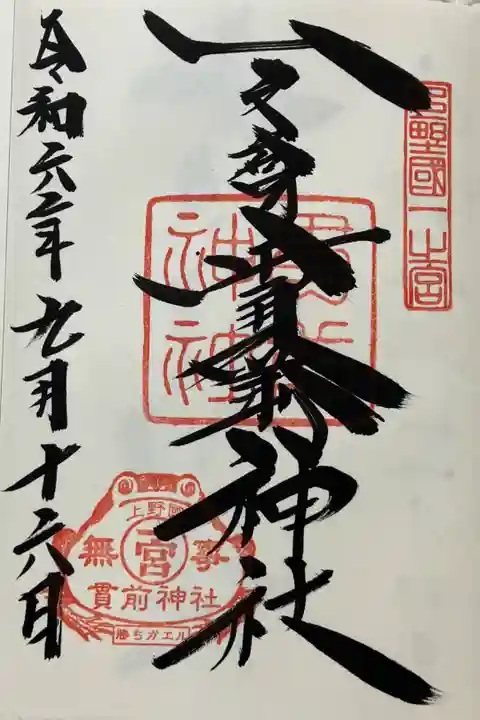 上野國一之宮
一之宮貫前神社
令和六年九月十六日
上野國
無 一宮 事
貫前神社
勝ちカエル